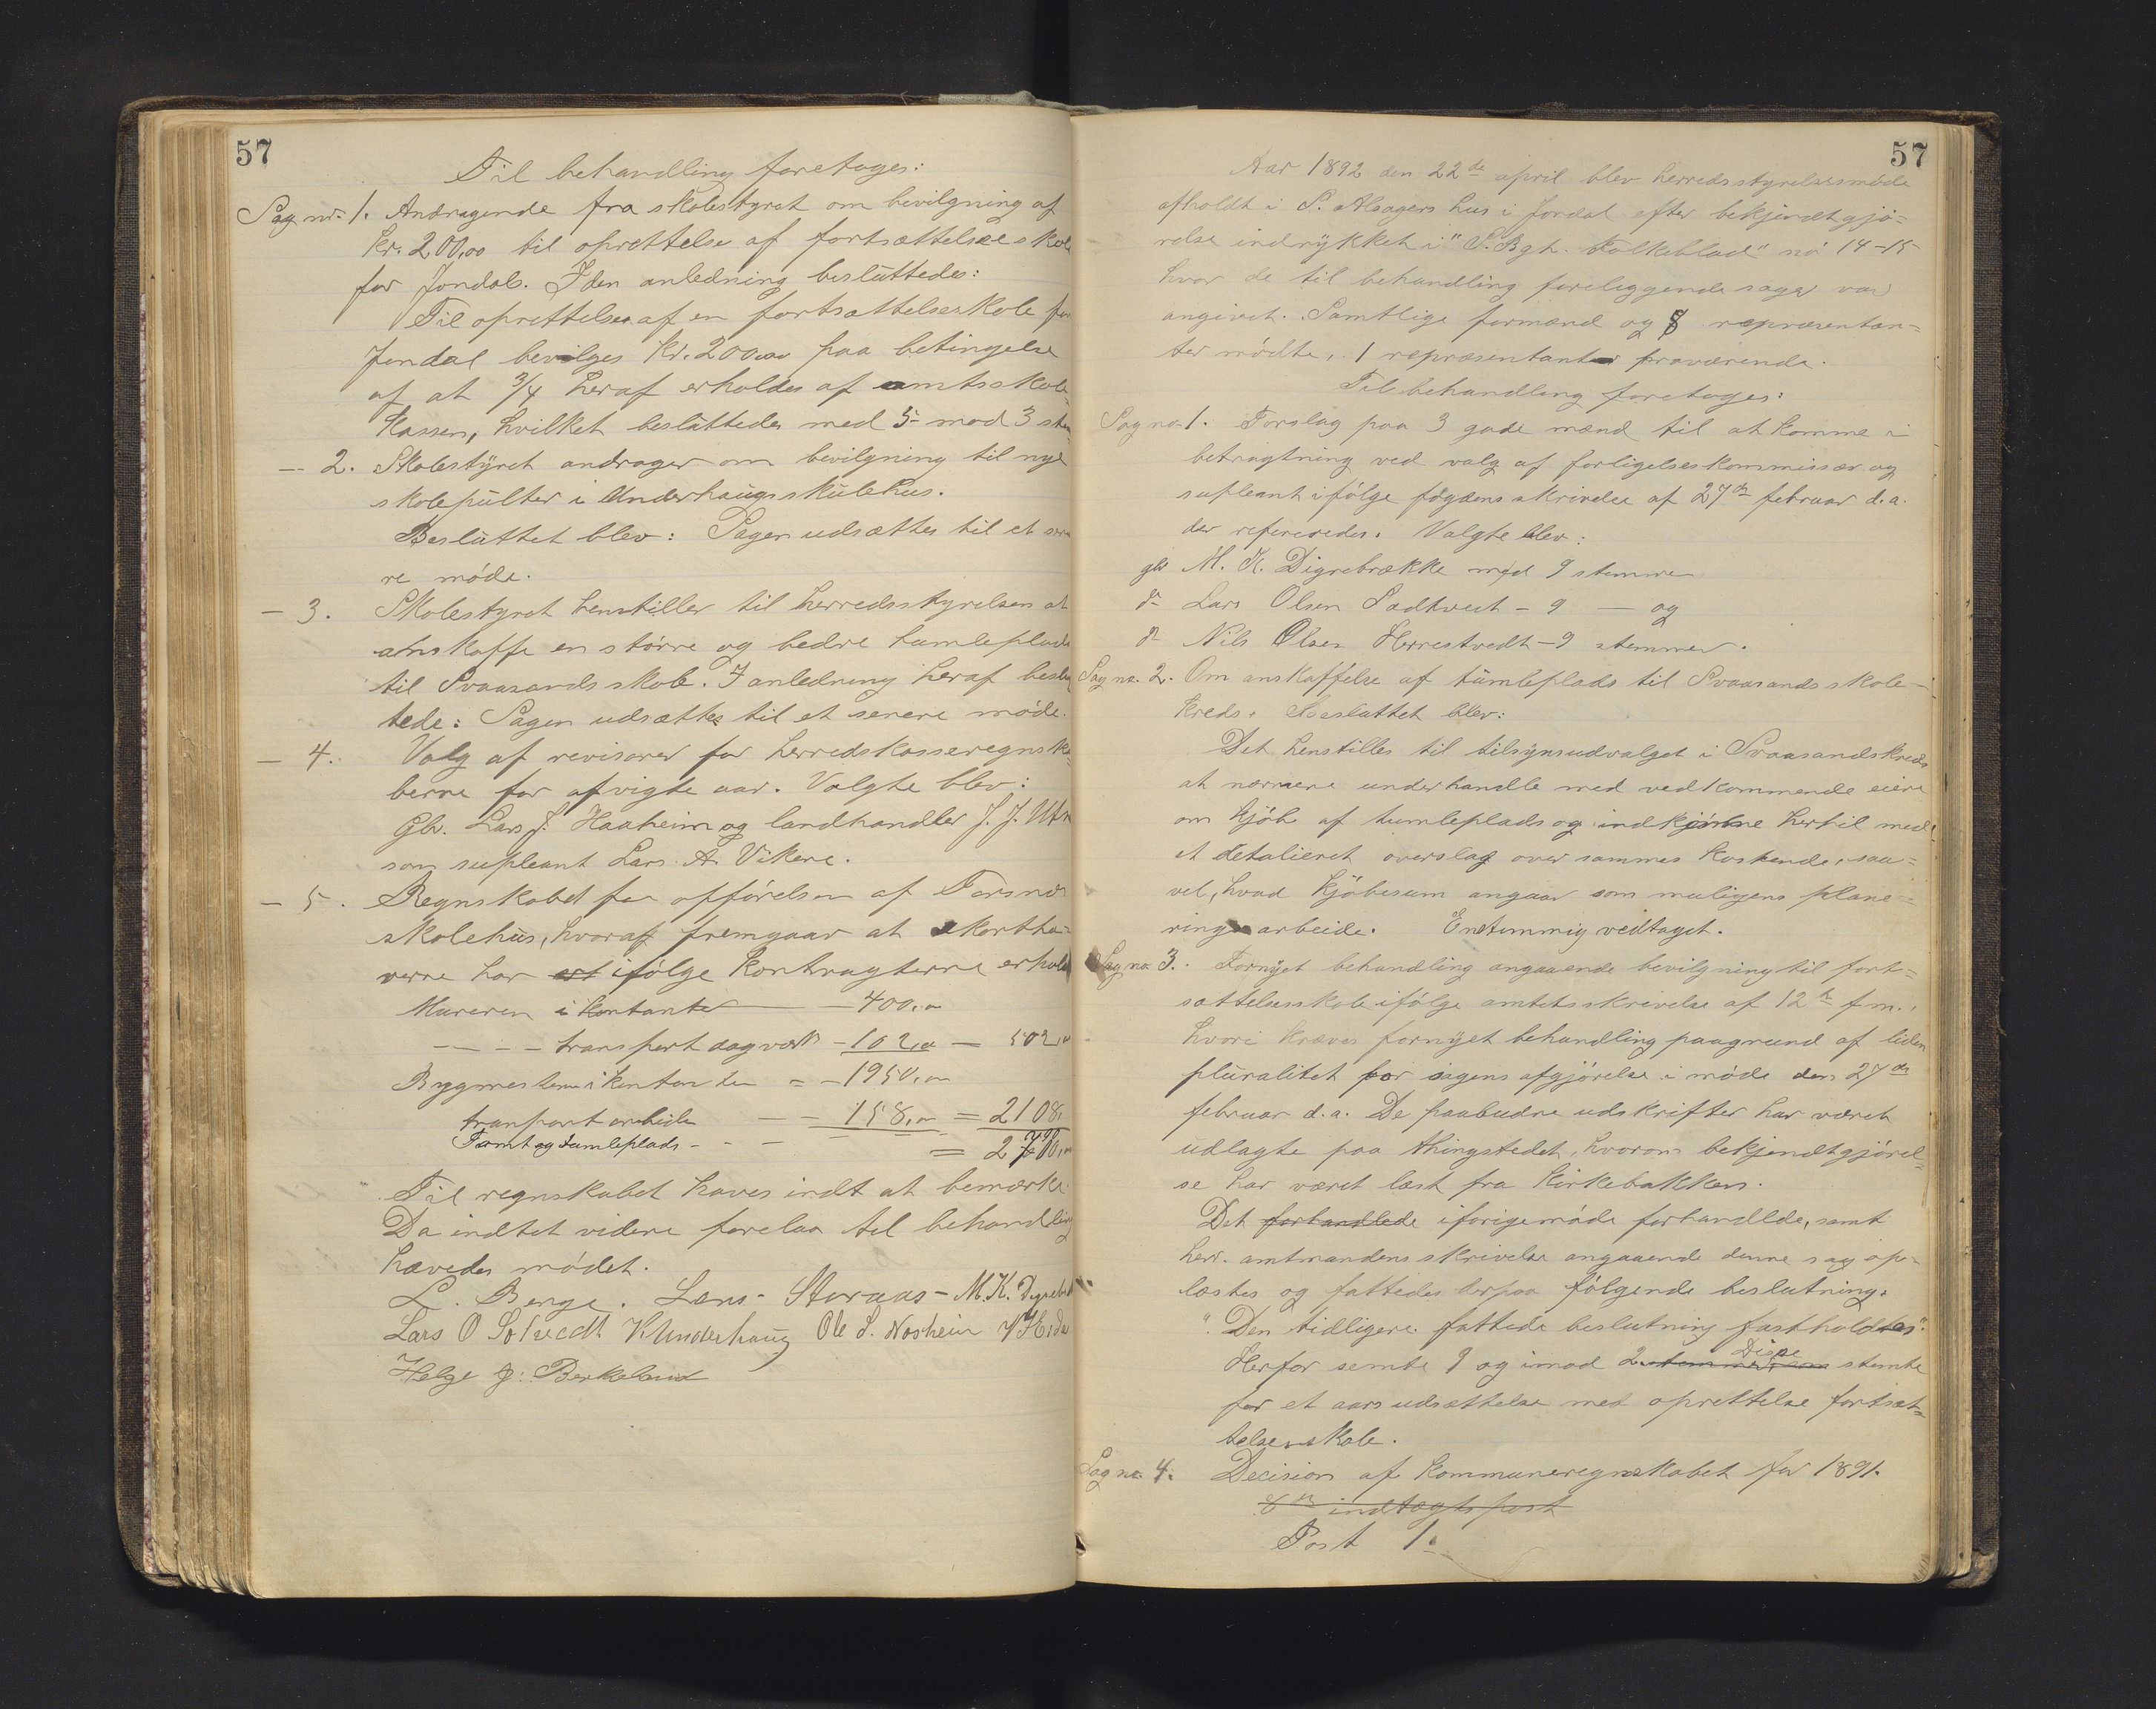 57
Til behandling foretoges:
Sag nr. 1. Andragende fra skolestyret om bevilgning af
kr. 200,00 til oprettelse af fortsættelseskole
for Jondal. I den anledning besluttedes:
Til oprettelse af en fortsættelseskole for
Jondal bevilges kr. 200,00 paa betingelse
af at 3/4 heraf erholdes af amtsskole-
kassen, hvilket besluttedes med 5 mod 3
— 2. Skolestyret andrager om bevilgning til nye
skolepulter i Underhaugs skulehus.
Besluttet blev: Sagen udsættes til et
re møde.
— 3. Skolestyret henstiller til herredsstyrelsen at
anskaffe en større og bedre tumleplads
til Svaasands skole. I anledning heraf beslut
tede: Sagen udsættes til et senere møde.
— 4. Valg af revisorer for herredskasseregnska-
berne for afvigte aar. Valgte blev:
Gbr. Lars J. Haaheim og landhandler J. J. Utn
som supleant Lars A. Vikene.
— 5. Regnskabet for opførelsen af Torsnæs
skolehus, hvoraf fremgaar at akortha-
verne har ifølge kontragterne erholdt
Mureren i kontanter — 400,00
— — — transport dagværk — 102,00 — 502,00
Bygmesteren i kontanter = — 1950,00
transport arbeide — — 158,00 = 2108,
Tomt og tumleplads — — — =
Til regnskabet haves indt at bemærke.
Da indtet videre forelaa til behandling
hævedes mødet.
L. Berge. Lars Storaas — M. K. Digrebrek
Lars O Solvedt K Underhaug Ole S. Nosheim
Helge J: Berkeland
57
Aar 1892 den 22de april blev herredsstyrelsesmøde
afholdt i S. Alsagers hus i Jondal efter bekjendtgjø=
relse indrykket i "S. Bgh. Folkeblad" nō 14-15
hvor de til behandling foreliggende sager var
angivet. Samtlige formænd og 8 repræsentan=
ter mødte, 1 repræsentant fraværende.
Til behandling foretoges:
Sag no 1. Forslag paa 3 gode mænd til at komme i
betragtning ved valg af forligelseskommissær og
supleant ifølge fogdens skrivelse af 27de februar d.a.
der refereredes. Valgte blev:
gbr M. K. Digrebrække med 9 stemmer
do Lars Olsen Sædtveit — 9 — og
do Nils Olsen Herrestvedt — 9 stemmer.
Sag no. 2. Om anskaffelse af tumleplads til Svaasands skole-
kreds. Besluttet blev:
Det henstilles til tilsynsudvalget i Svaasandskreds
at nærmere underhandle med vedkommende eiere
om kjøb af tumleplads og indkomme hertil med
et detalieret overslag over sammes kostende, saa=
vel, hvad kjøbesum angaar som muligens plane=
ringsarbeide. Enstemmig vedtaget.
Sag no 3. Fornyet behandling angaaende bevilgning til fort=
sættelsesskole ifølge amtets skrivelse af 12te f.m.,
hvori kræves fornyet behandling paagrund af liden
pluralitet for sagens afgjørelse i møde den 27de
februar d.a. De paabudne udskrifter har været
udlagte paa thingstedet, hvorom bekjendtgjørel=
se har været læst fra kirkebakken.
Det forhandlede iforigemøde forhandlde, samt
herr. amtmandens skrivelse angaaende denne sag op-
læstes og fattedes derpaa følgende beslutning.
"Den tidligere fattede beslutning fastholdes".
Herfor semte 9 og imod 2 stemmer, som Disse stemte
for et aars udsættelse med oprettelse fortsæt=
telsesskole.
Sag no. 4. Decision af kommuneregnskabet for 1891.
8de indtægts post
Post 1.